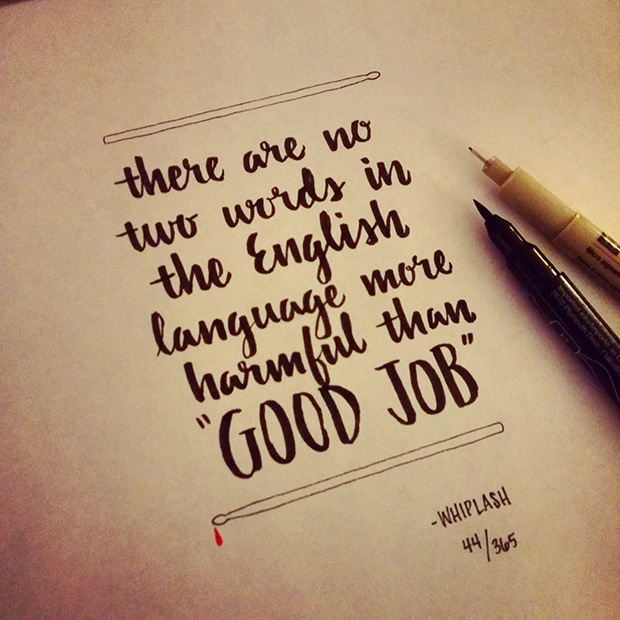 there are no
two words in
the English
language more
harmful than
"GOOD JOB"
-WHIPLASH
44/365